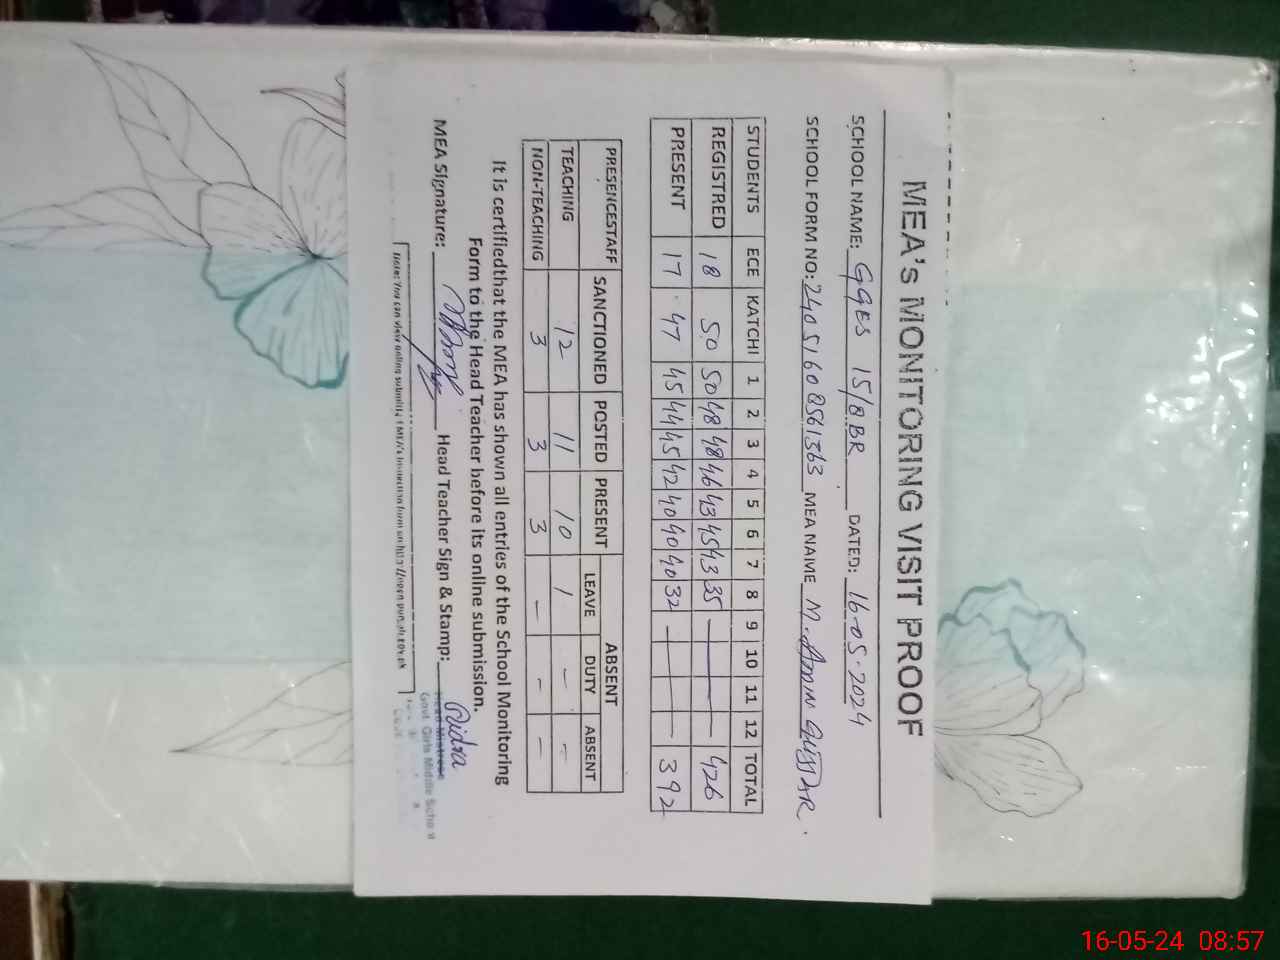 MEA's MONITORING VISIT PROOF
SCHOOL NAME: GGES 15/8BR DATED: 16-05-2024
SCHOOL FORM NO: MEA NAME M.
STUDENTS ECE KATCHI 1 2 3 4 5 6 7 8 9 10 11 12 TOTAL
REGISTRED 18 50 50 48 48 46 43 45 43 35 — — — — 426
PRESENT 17 47 45 44 45 42 40 40 40 32 — — — — 392
PRESENCESTAFF SANCTIONED POSTED PRESENT ABSENT
LEAVE DUTY ABSENT
TEACHING 12 11 10 1 - -
NON-TEACHING 3 3 3 - - -
It is certifiedthat the MEA has shown all entries of the School Monitoring
Form to the Head Teacher before its online submission.
MEA Signature: Head Teacher Sign & Stamp: Sidra
Head Mistress
Govt. Girls Middle School
Note: You can view online
16-05-24 08:57